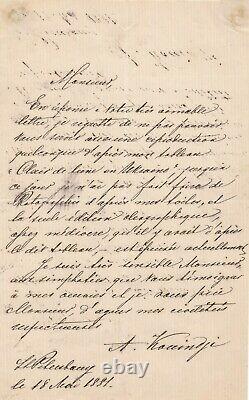 Monsieur,
En réponse à votre très aimable
lettre, je regrette de ne pas pouvoir
vous faire une reproduction
quelconque d'après mon tableau
"Clair de lune en Ukraine", jusqu'à
ce jour n'ai pas fait faire de
Photographies d'après mes toiles, et
la seule édition oléographique,
assez médiocre, qu'il y avait d'après
ce dit tableau, est épuisée actuellement
Je suis très sensible Monsieur,
aux sympathies, que vous témoignez
à mes œuvres et je vous prie
Monsieur, d'agréer mes civilités
respectueuses
A. Kouindji
St Petersbourg
le 18 Mai 1881.
© ebay